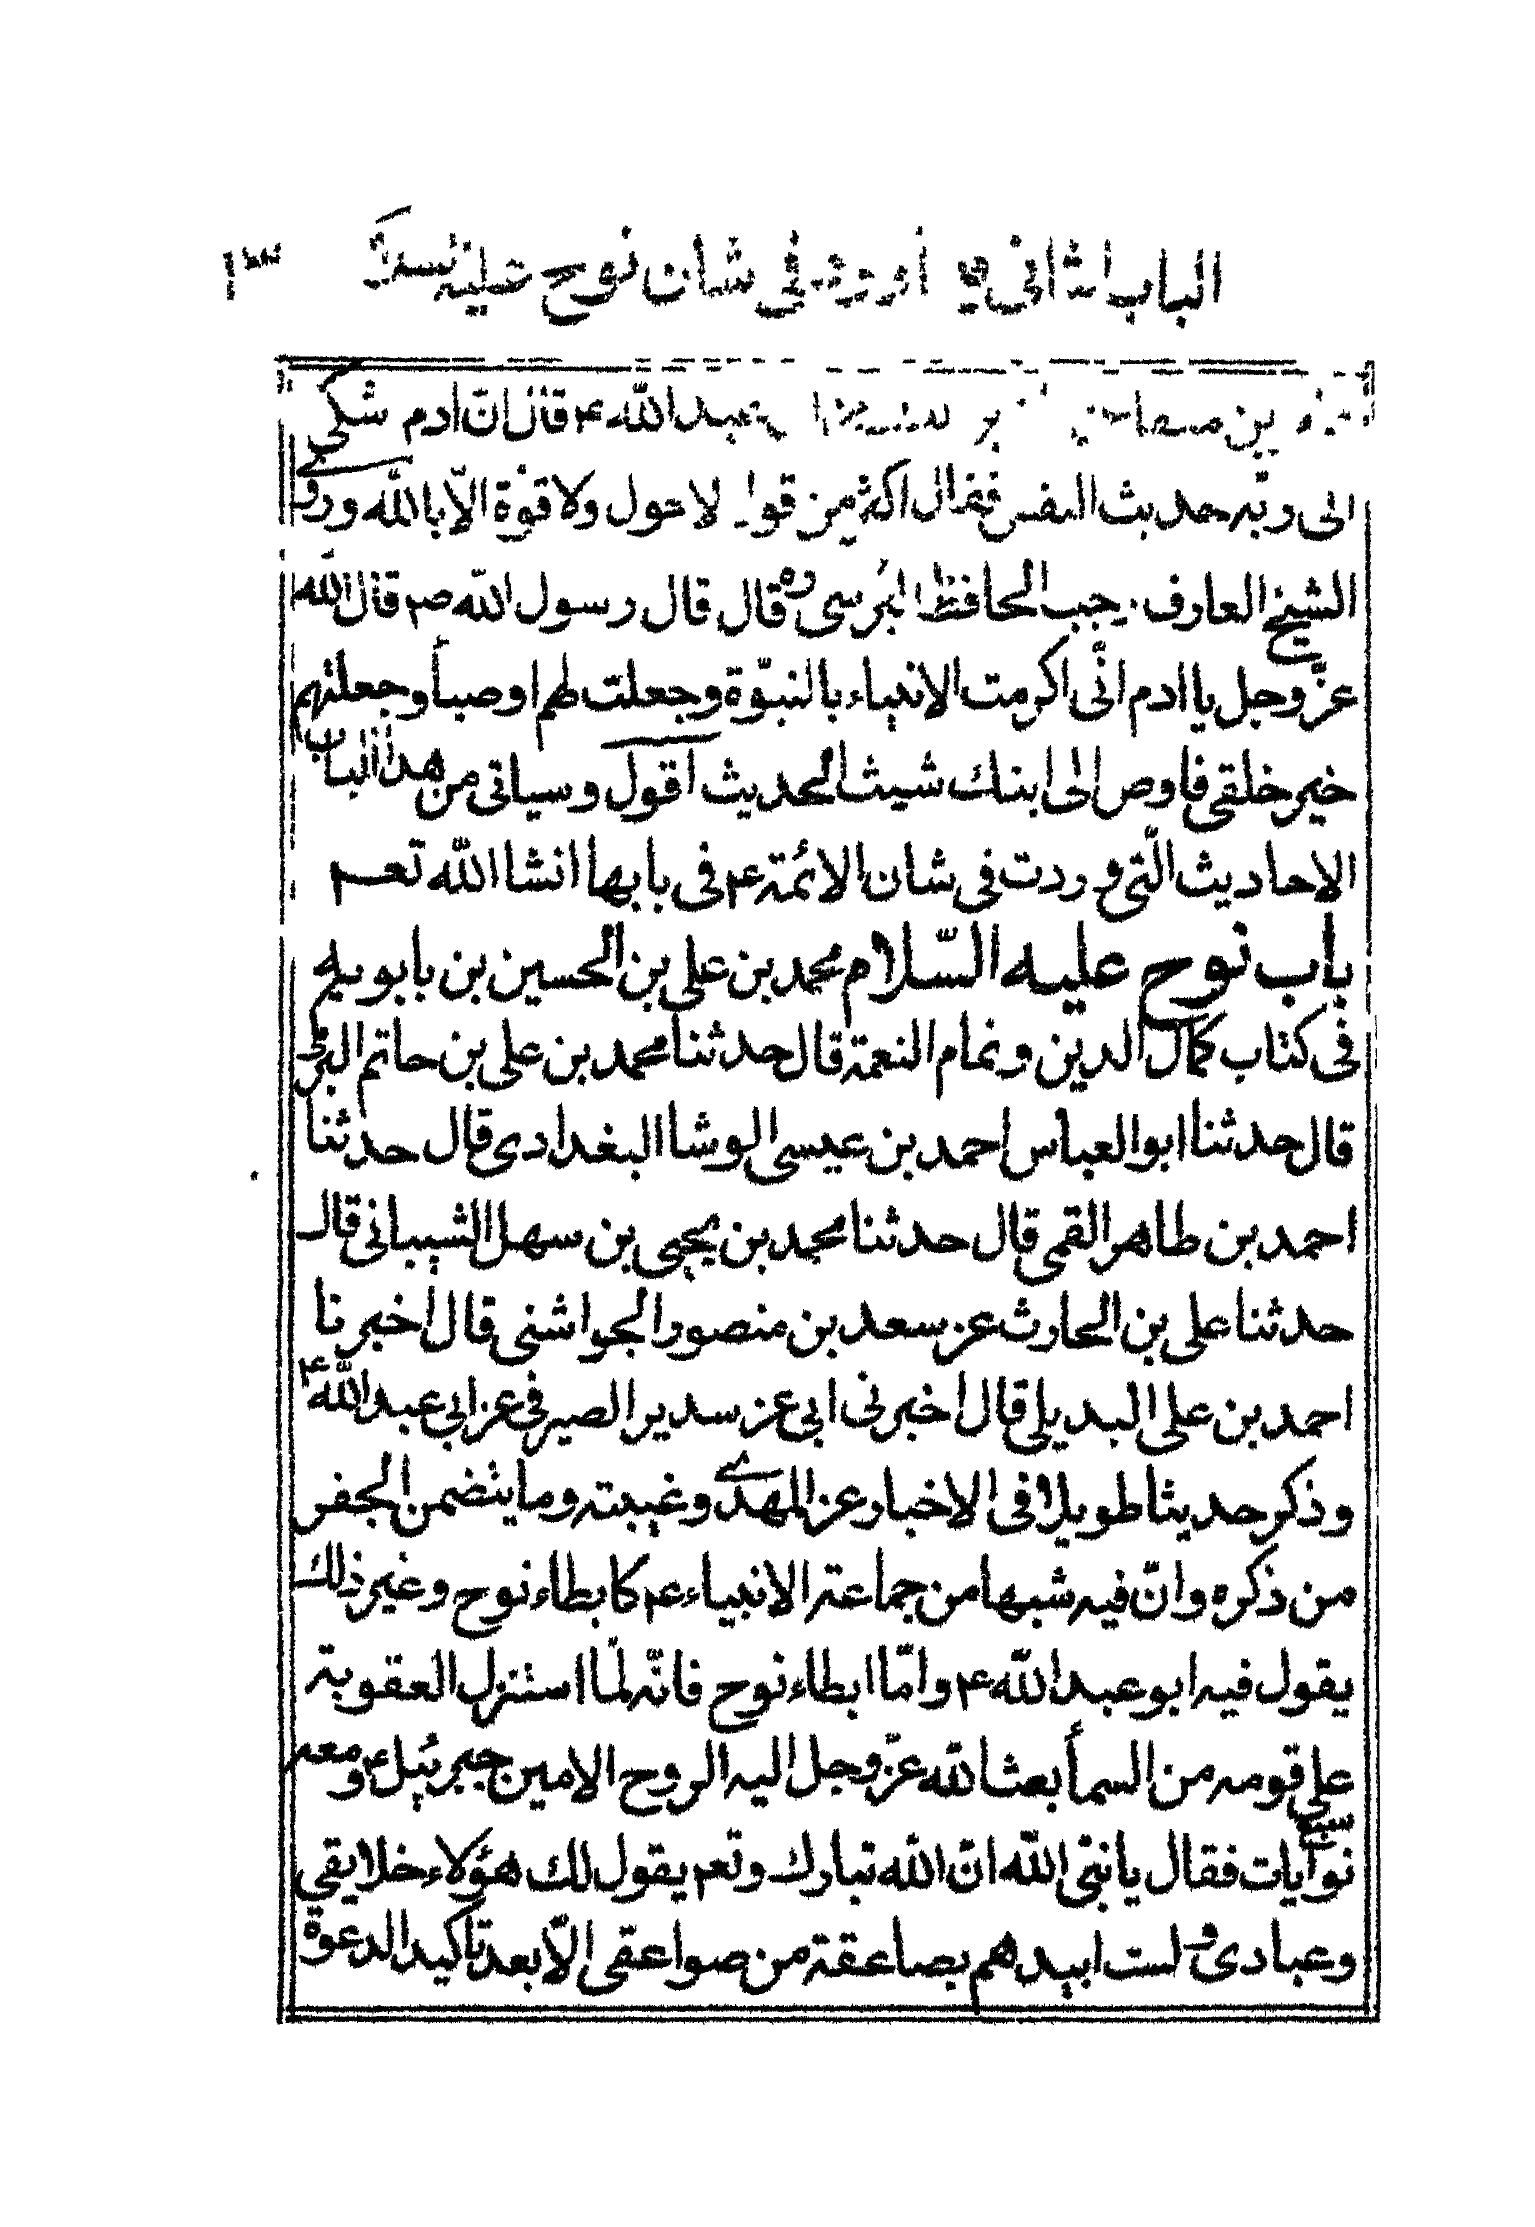 الباب الثانى فى ورد فى شان نوح عليه السلام ١٣
بن عبد الله ع قال ان ادم شكى
الى ربه حديث النفس فقال اكثر من قول لا حول ولا قوة الّا بالله وروى
الشيخ العارف رجب الحافظ البرسى ره قال قال رسول الله ص قال الله
عزّ وجل يا ادم انّى اكرمت الانبياء بالنبوّة وجعلت لهم اوصيأ وجعلتهم
خير خلقى فاوص الى ابنك شيث الحديث اقول وسياتى من هذا الباب
الاحاديث الّتى وردت فى شان الائمة ع فى بابها انشا الله تعم
باب نوح عليه السّلام محمد بن على بن الحسين بن بابويه
فى كتاب كمال الدين وتمام النعمة قال حدثنا محمد بن على بن حاتم البرقى
قال حدثنا ابو العباس احمد بن عيسى الوشا البغدادى قال حدثنا
احمد بن طاهر القمى قال حدثنا محمد بن يحيى بن سهل الشيبانى قال
حدثنا على بن الحارث عن سعد بن منصور الجواشنى قال اخبرنا
احمد بن على البديلى قال اخبرنى ابى عن سدير الصيرفى عن ابى عبد الله ع
وذكر حديثا طويلا فى الاخبار عن المهدى وغيبته وما يتضمن الجفر
من ذكره وانّ فيه شبها من جماعة الانبياء ع كابطاء نوح وغير ذلك
يقول فيه ابو عبد الله ع وامّا ابطاء نوح فانّه لمّا استنزل العقوبة
على قومه من السمأ بعث الله عزّ وجل اليه الروح الامين جبرئيل ع ومعه سبع
نوايات فقال يا نبىّ الله انّ الله تبارك وتعم يقول لك هؤلاء خلايقى
وعبادى ولست ابيدهم بصاعقة من صواعقى الّا بعد تاكيد الدعوة